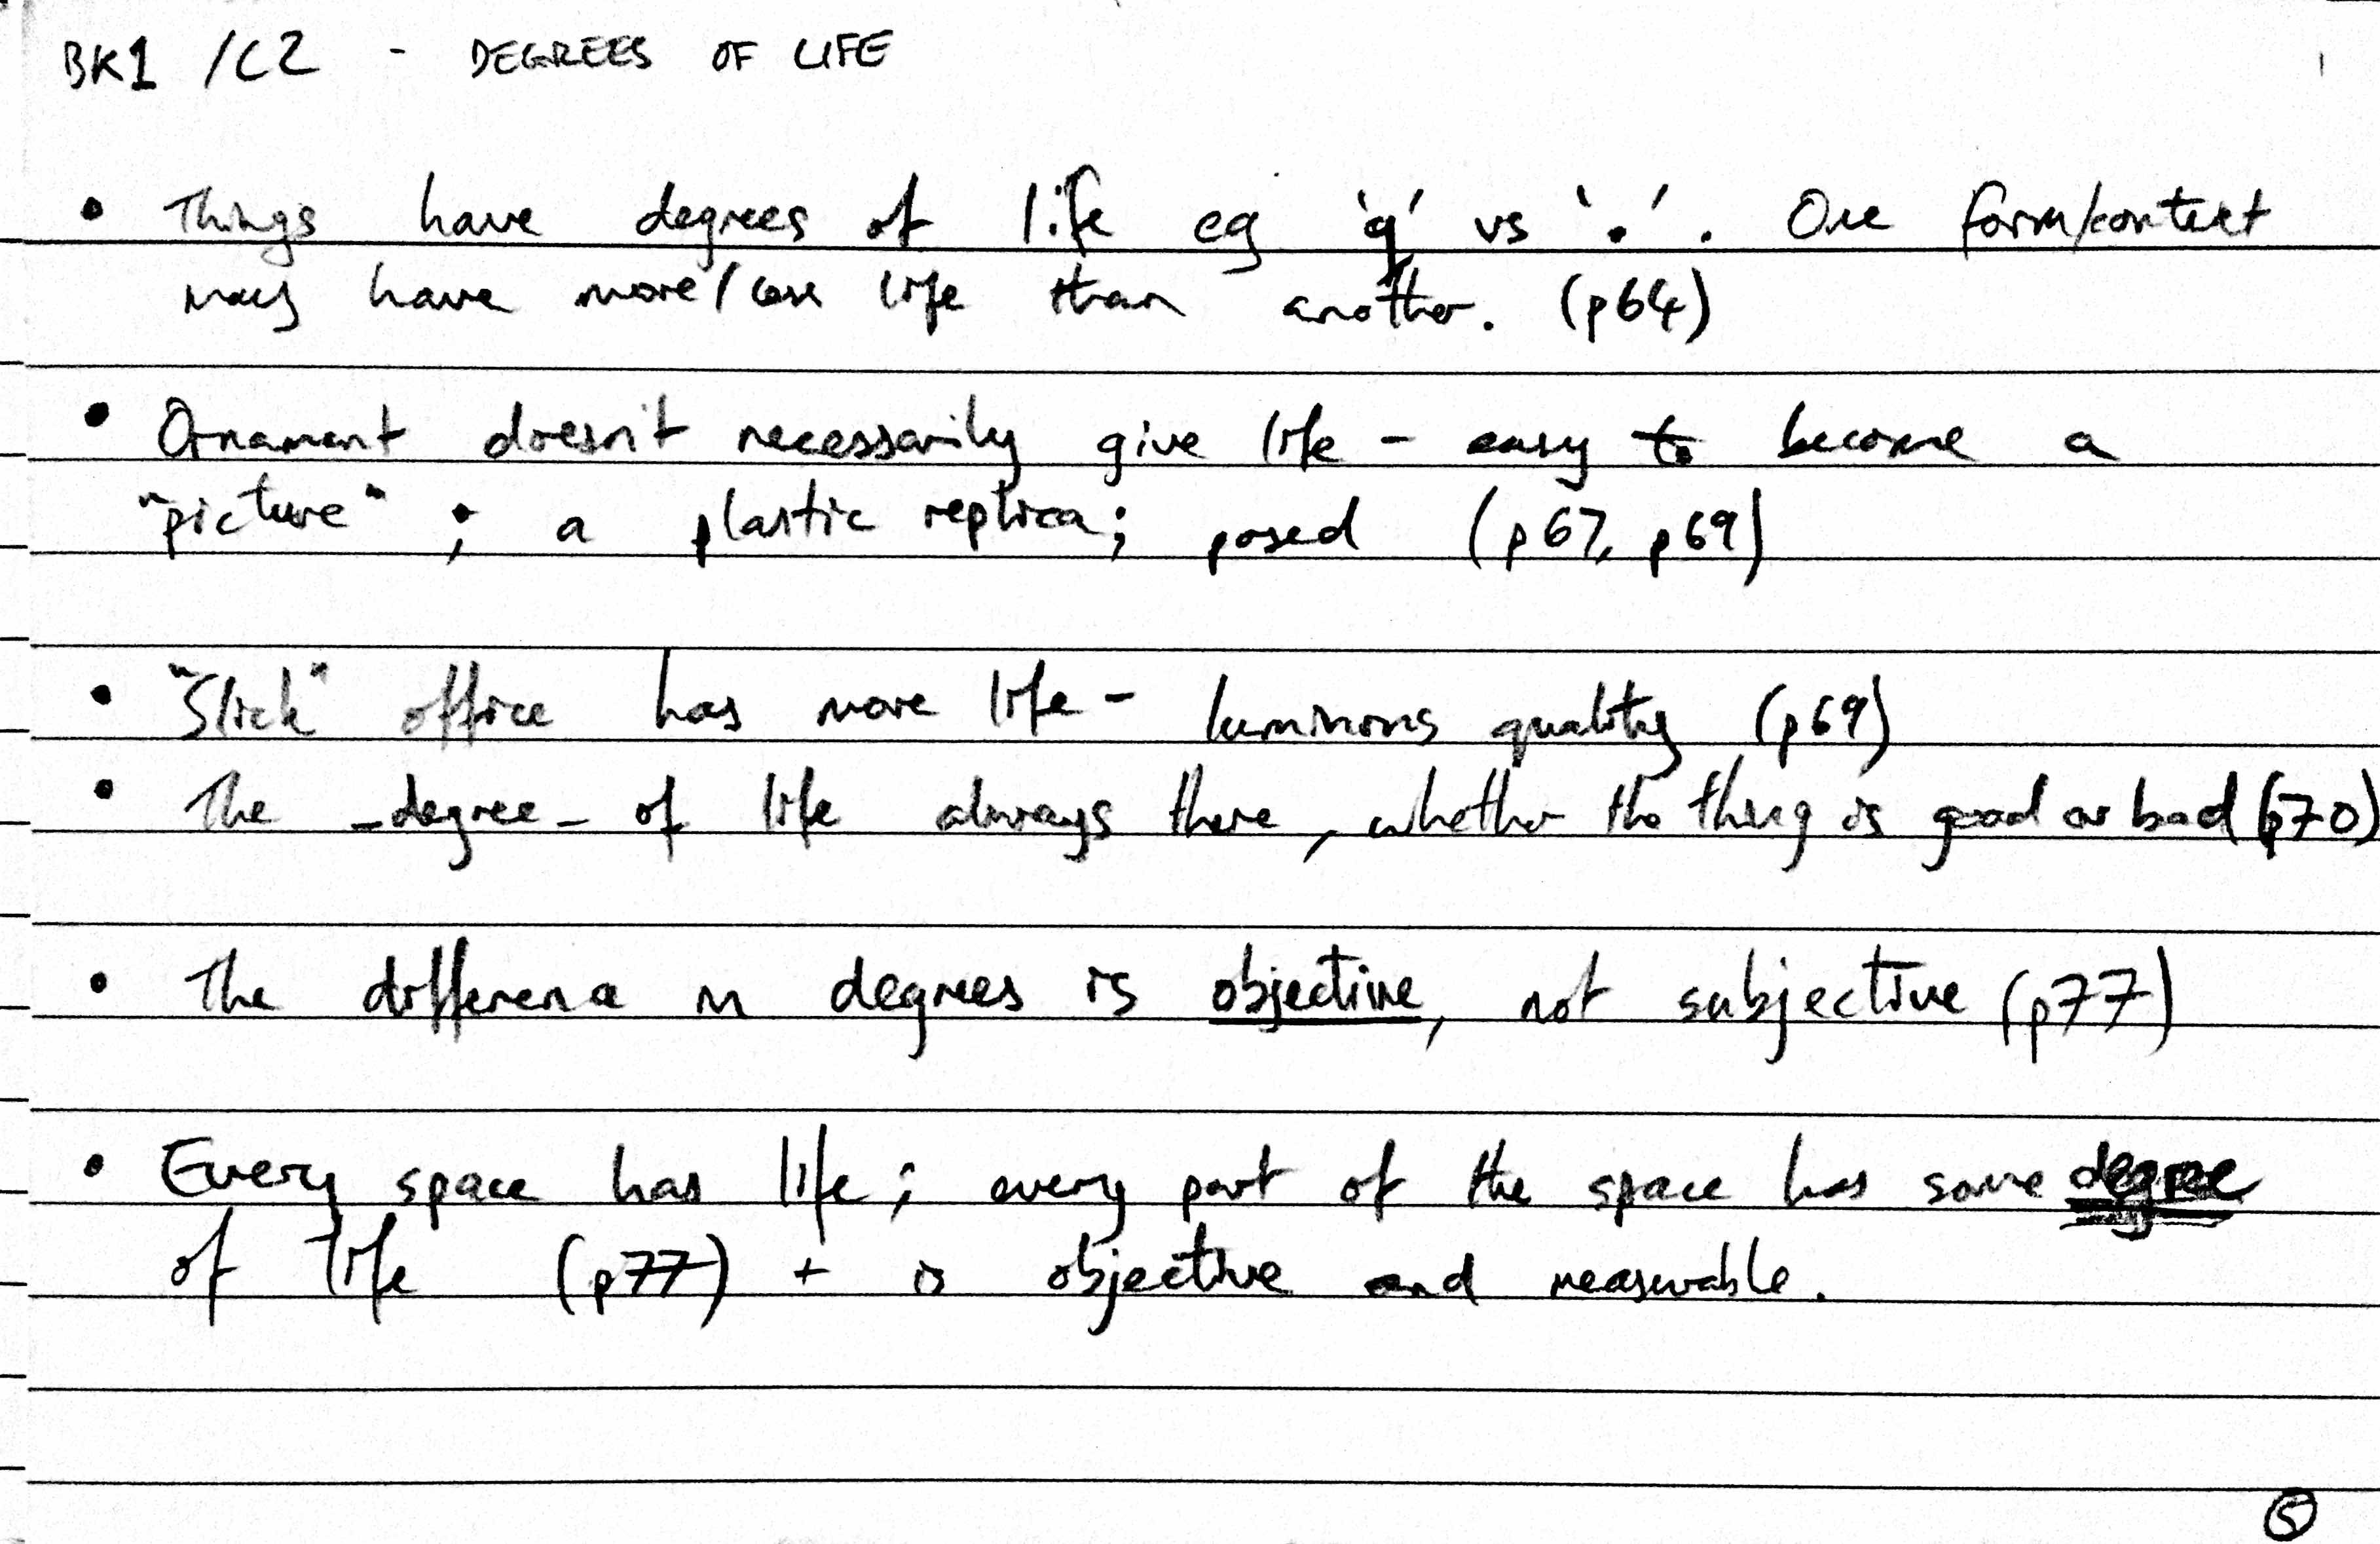 BK1 /C2 - DEGREES OF LIFE
• Things have degrees of life eg 'q' vs '.'. One form/context
may have more/less life than another. (p64)
• Ornament doesn't necessarily give life - easy to become a
"picture"; a plastic replica; posed (p67, p69)
• "Slick" office has more life - luminous quality (p69)
• The _degree_ of life always there, whether the thing is good or bad (p70)
• The difference in degrees is objective, not subjective (p77)
• Every space has life; every part of the space has some degree
of life (p77) + is objective and measurable.
5